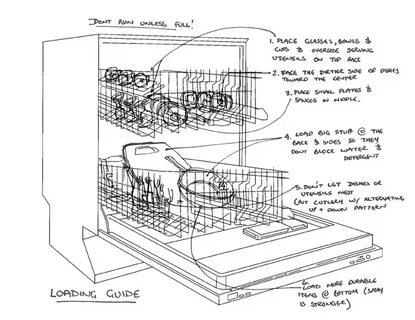 DON'T RUN UNLESS FULL!
1. PLACE GLASSES, BOWLS &
CUPS & OVERSIZE SERVING
UTENSILS ON TOP RACK
2. FACE THE DIRTIER SIDE OF DISHES
TOWARD THE CENTER
3. PLACE SMALL PLATES &
SAUCES IN MIDDLE,
4. LOAD BIG STUFF @ THE
BACK & SIDES SO THEY
DONT BLOCK WATER &
DETERGENT
5. DON'T LET DISHES OR
UTENSILS NEST
(PUT CUTLERY W/ ALTERNATING
UP + DOWN PATTERN
6.
LOAD MORE DURABLE
ITEMS @ BOTTOM (SPRAY
IS STRONGER)
LOADING GUIDE